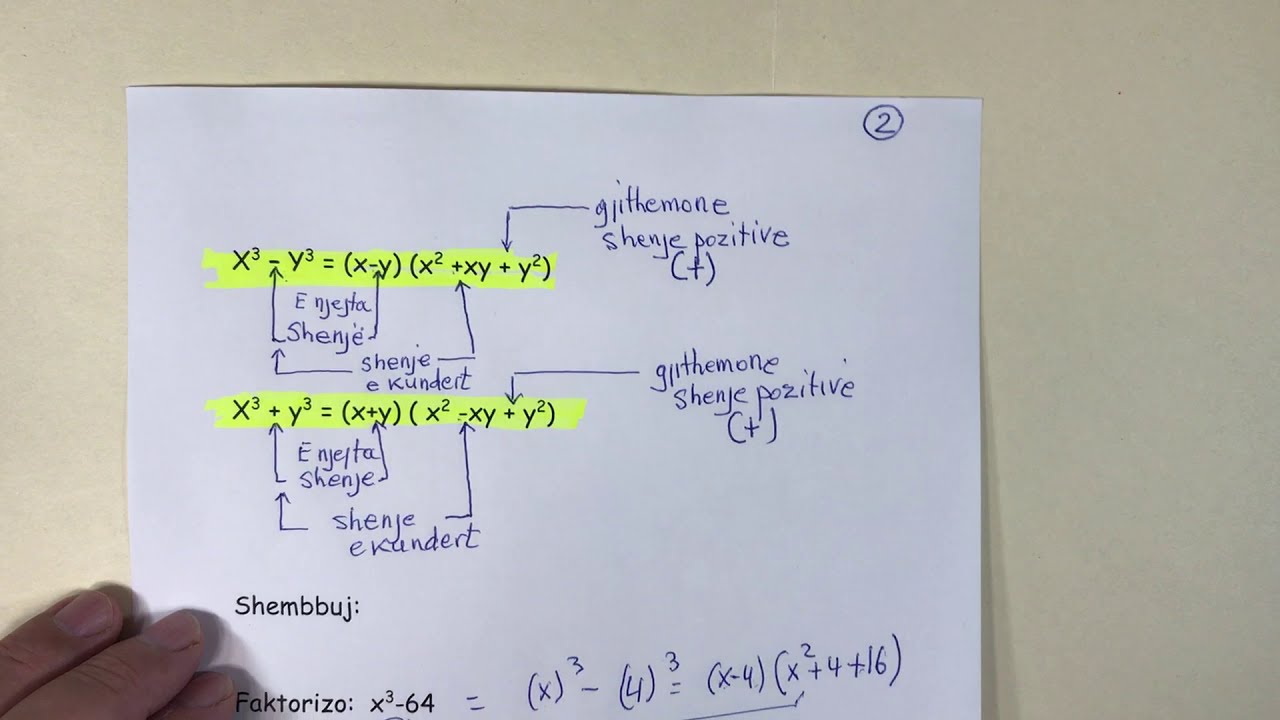 2
gjithemone
shenje pozitive
(+)
X³ - Y³ = (x-y) (x² +xy + y²)
E njejta
Shenjë
shenje
e kundert
gjithemone
shenje pozitive
(+)
X³ + y³ = (x+y) ( x² -xy + y²)
E njejta
shenje
shenje
e kundert
Shembbuj:
Faktorizo: x³-64 = (x)³ - (4)³ = (x-4) (x²+4+16)